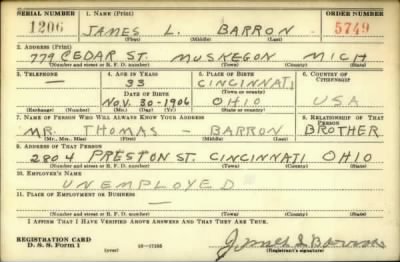 SERIAL NUMBER 1. NAME (Print) ORDER NUMBER
1206 JAMES L. BARRON 5749
(First) (Middle) (Last)
2. ADDRESS (Print)
779 CEDAR ST. MUSKEGON MICH
(Number and street or R. F. D. number) (Town) (County) (State)
3. TELEPHONE 4. AGE IN YEARS 5. PLACE OF BIRTH 6. COUNTRY OF CITIZENSHIP
— 33 CINCINNATI
DATE OF BIRTH (Town or county)
NOV. 30-1906 OHIO USA
(Exchange) (Number) (Mo.) (Day) (Yr.) (State or country)
7. NAME OF PERSON WHO WILL ALWAYS KNOW YOUR ADDRESS 8. RELATIONSHIP OF THAT PERSON
MR. THOMAS — BARRON BROTHER
(Mr., Mrs., Miss) (First) (Middle) (Last)
9. ADDRESS OF THAT PERSON
2804 PRESTON ST. CINCINNATI OHIO
(Number and street or R. F. D. number) (Town) (County) (State)
10. EMPLOYER'S NAME
UNEMPLOYED
11. PLACE OF EMPLOYMENT OR BUSINESS
—
(Number and street or R. F. D. number) (Town) (County) (State)
I AFFIRM THAT I HAVE VERIFIED ABOVE ANSWERS AND THAT THEY ARE TRUE.
REGISTRATION CARD
D. S. S. Form 1 16—17105 James L Barron